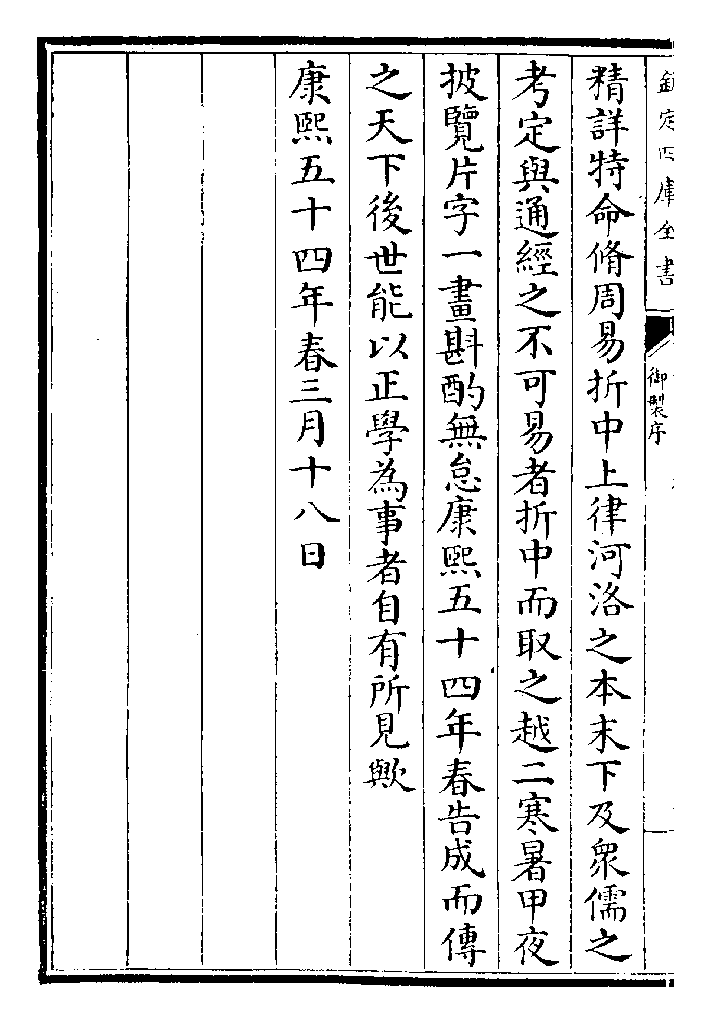 欽定四庫全書
御製序
精詳特命脩周易折中上律河洛之本末下及衆儒之
考定與通經之不可易者折中而取之越二寒暑甲夜
披覽片字一畫斟酌無怠康熙五十四年春告成而傳
之天下後世能以正學為事者自有所見歟
康熙五十四年春三月十八日